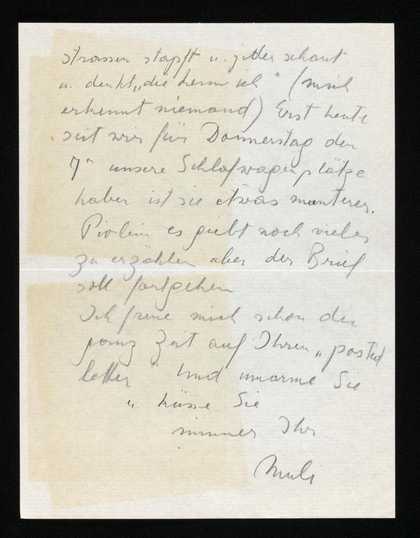 strassen stapft u. jeder schaut
u. denkt „die kenn ich" (mich
erkennt niemand) Erst heute
seit wir für Donnerstag den
7" unsere Schlafwagenplätze
haben ist sie etwas munterer.
es giebt noch vieles
zu erzählen aber der Brief
soll fortgehen
Ich freue mich schon die
ganz Zeit auf Ihren „posted
letter" und umarme Sie
u küsse Sie
immer Ihr